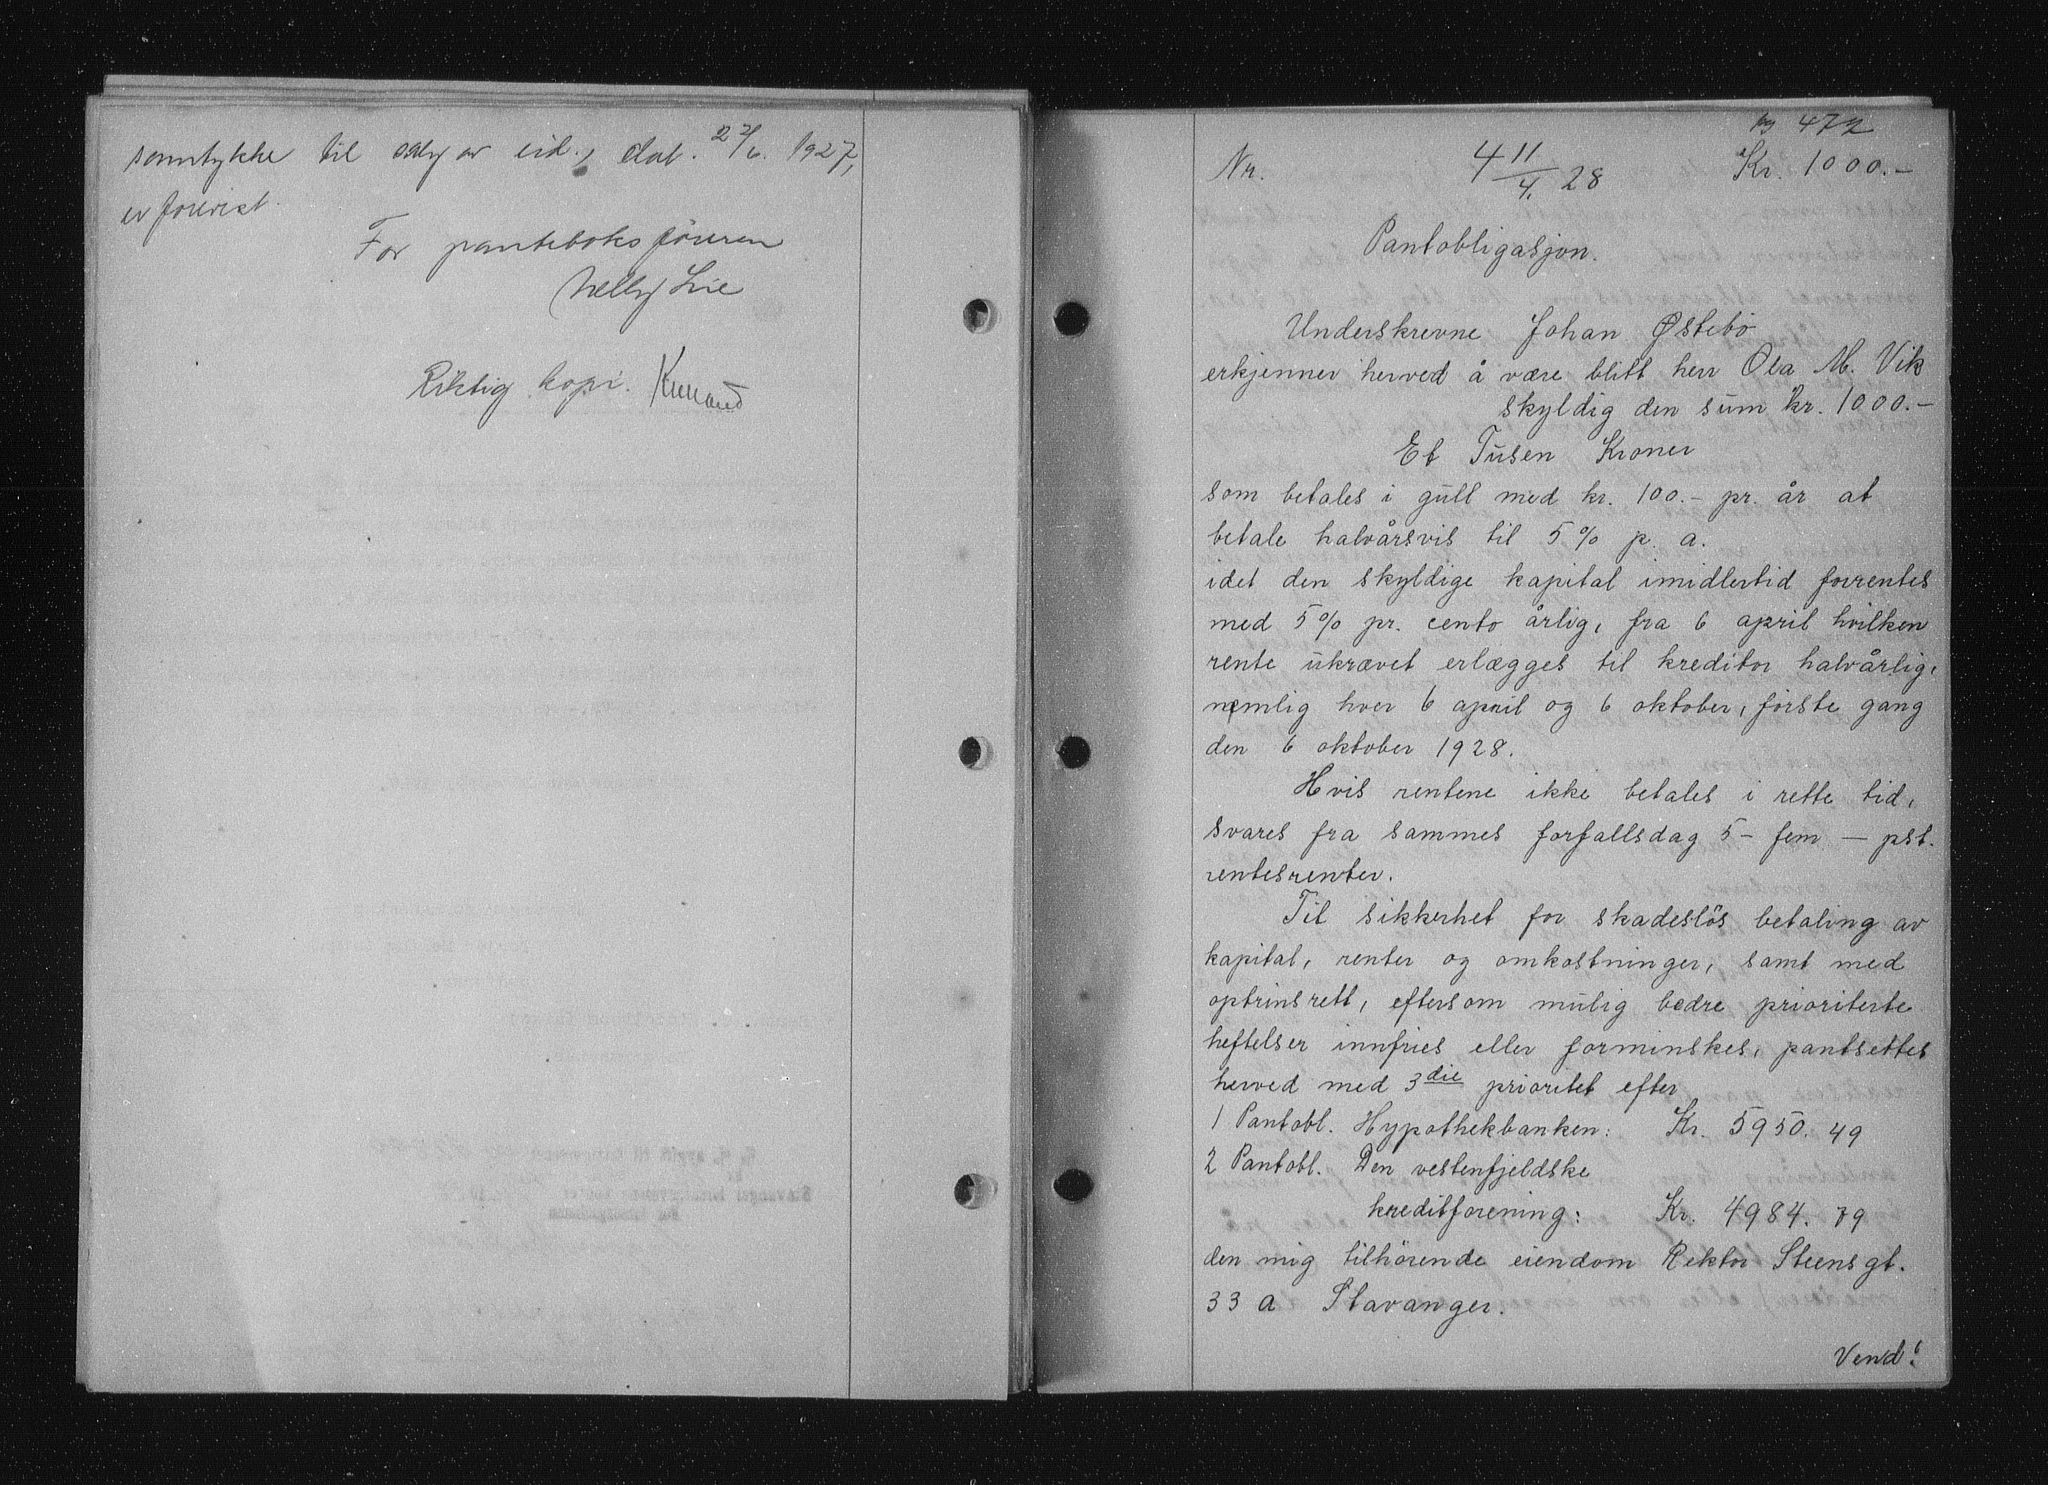 samtykke til salg av eid., dat. 27/6. 1927,
er forevist.
For panteboksføreren
Nelly Lie
Riktig kopi.
pg 472
Nr. 4 11/4. 28 Kr. 1000.-
Pantobligasjon.
Underskrevne Johan Østebö
erkjenner herved å være blitt herr Ola M. Vik
skyldig den sum kr. 1000.-
Et Tusen Kroner
som betales i gull med kr. 100.- pr. år at
betale halvårsvis til 5% p. a.
idet den skyldige kapital imidlertid forrentes
med 5% pr. cento årlig, fra 6 april hvilken
rente ukrævet erlægges til kreditor halvårlig,
nemlig hver 6 april og 6 oktober, förste gang
den 6 oktober 1928.
Hvis rentene ikke betales i rette tid,
svares fra sammes forfallsdag 5 - fem - pst.
rentesrenter.
Til sikkerhet for skadeslös betaling av
kapital, renter og omkostninger, samt med
optrinsrett, eftersom mulig bedre prioriterte
heftelser innfries eller forminskes, pantsettes
herved med 3die prioritet efter
1 Pantobl. Hypothekbanken: Kr. 5950.49
2 Pantobl. Den vestenfjeldske
kreditforening: Kr. 4984.79
den mig tilhörende eiendom Rektor Steens gt.
33 a Stavanger.
Vend!